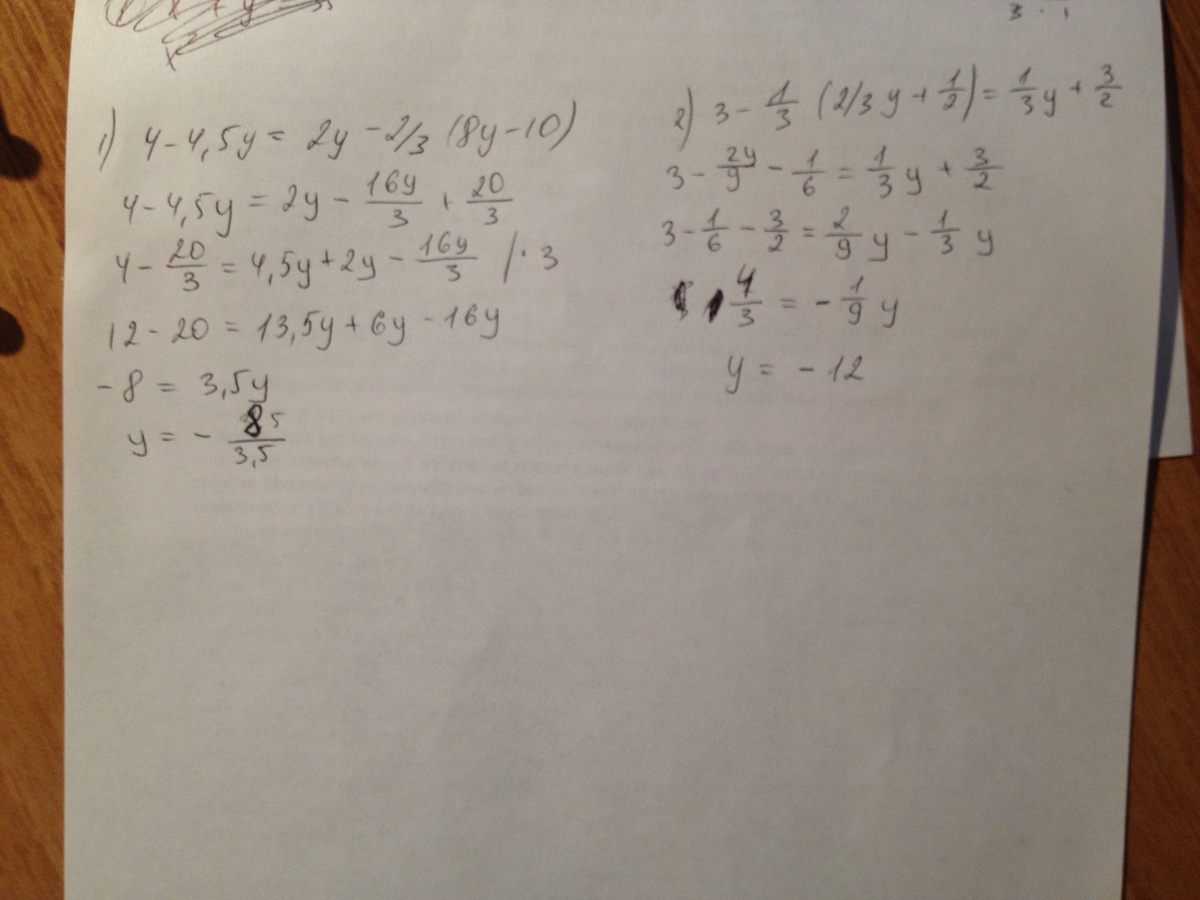 1) 4 - 4,5y = 2y - 2/3 (8y - 10)
4 - 4,5y = 2y - 16y/3 + 20/3
4 - 20/3 = 4,5y + 2y - 16y/3 / · 3
12 - 20 = 13,5y + 6y - 16y
-8 = 3,5y
y = - 8/3,5
2) 3 - 1/3 (2/3 y + 1/2) = 1/3 y + 3/2
3 - 2y/9 - 1/6 = 1/3 y + 3/2
3 - 1/6 - 3/2 = 2/9 y - 1/3 y
4/3 = - 1/9 y
y = - 12